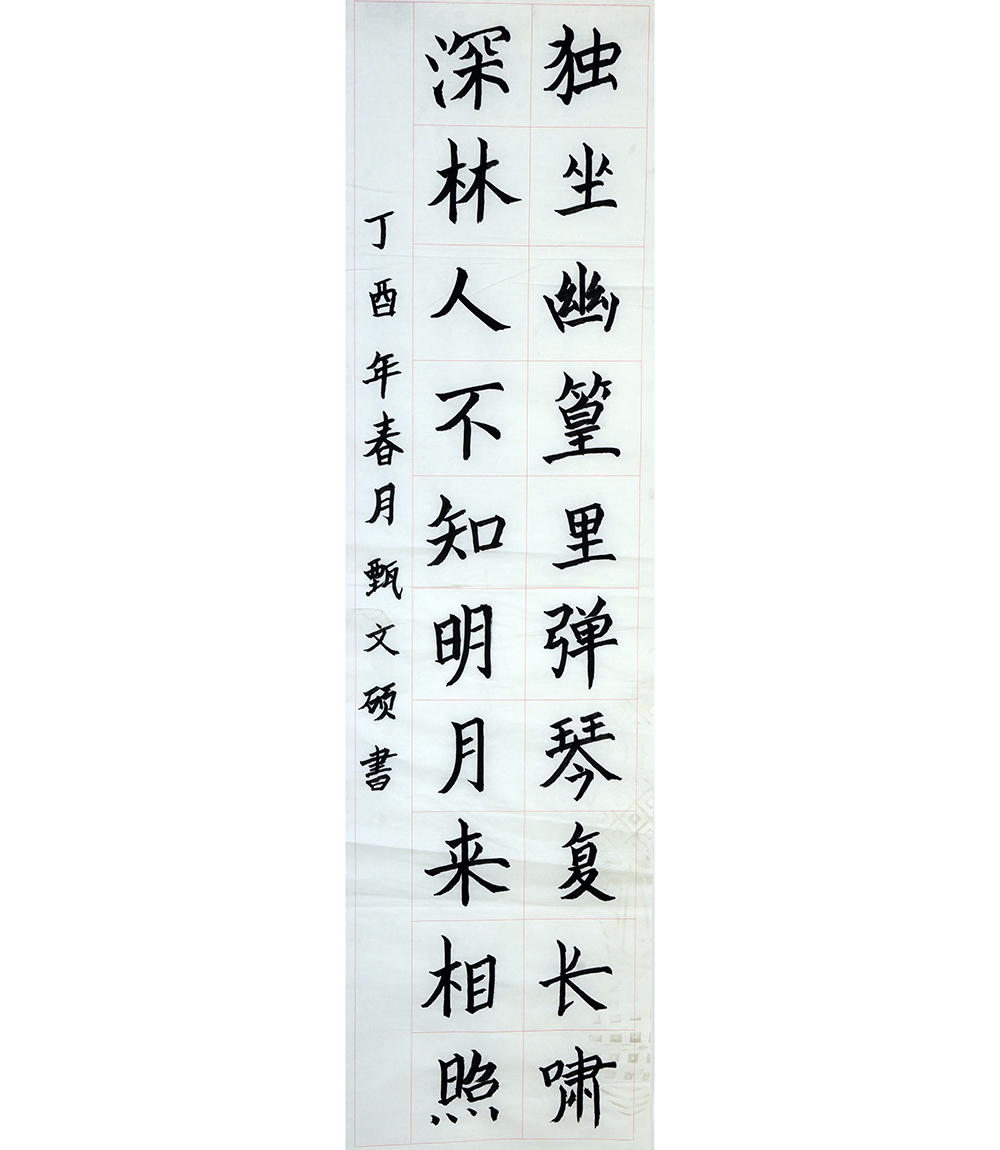 独坐幽篁里弹琴复长啸
深林人不知明月来相照
丁酉年春月甄文硕書